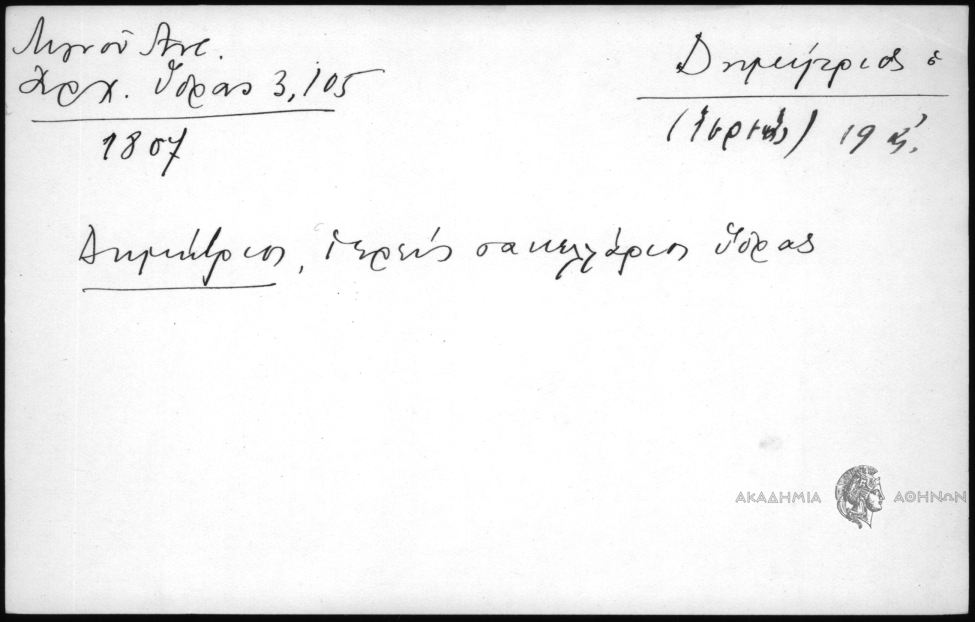 Λιγνοῦ Ἀντ.
Ἀρχ. Ὕδρας 3,105
1807
Δημήτριος
(ἱερεύς) 19
Δημήτριος, ἱερεύς σακελλάριος Ὕδρας
ΑΚΑΔΗΜΙΑ ΑΘΗΝΩΝ